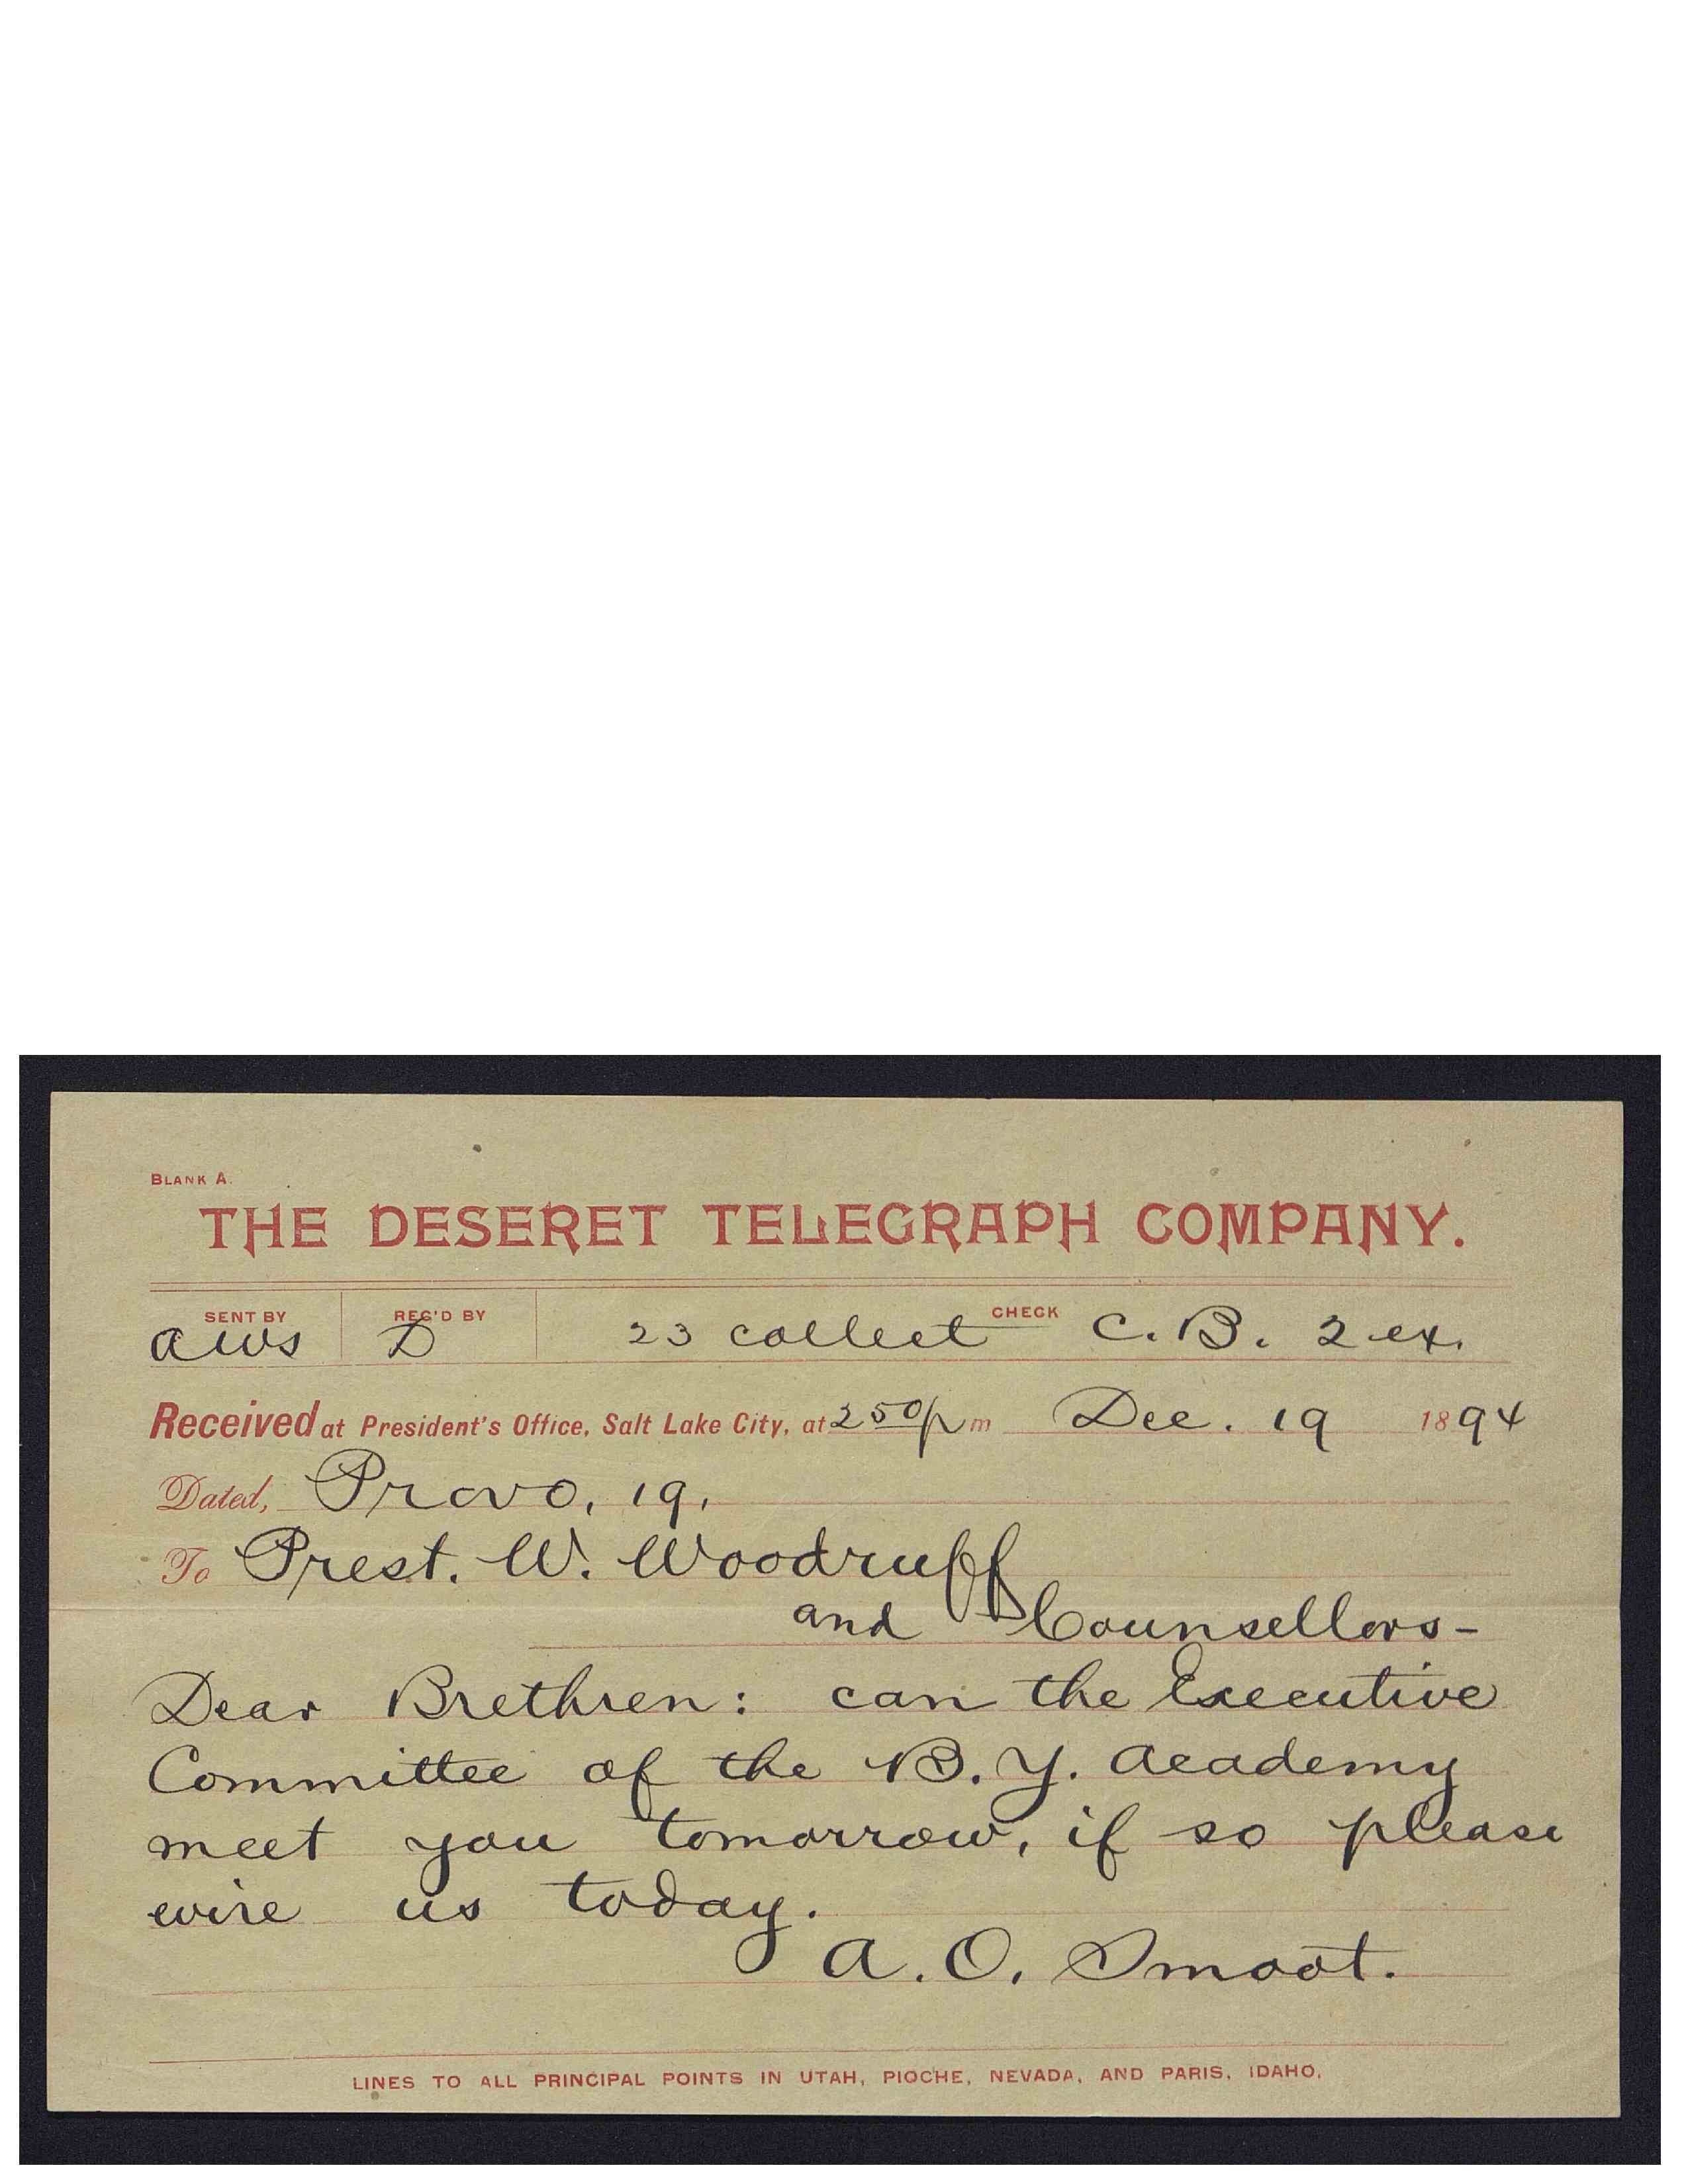 BLANK A.
THE DESERET TELEGRAPH COMPANY.
SENT BY REC'D BY CHECK
aws D 23 collect C. B. 2 ex.
Received at President's Office, Salt Lake City, at 2 50 p m Dec. 19 1894
Dated, Provo, 19,
To Prest. W. Woodruff
and Counsellors-
Dear Brethren: can the Executive
Committee of the B. Y. Academy
meet you tomorrow, if so please
wire us today.
A. O. Smoot.
LINES TO ALL PRINCIPAL POINTS IN UTAH, PIOCHE, NEVADA, AND PARIS, IDAHO.